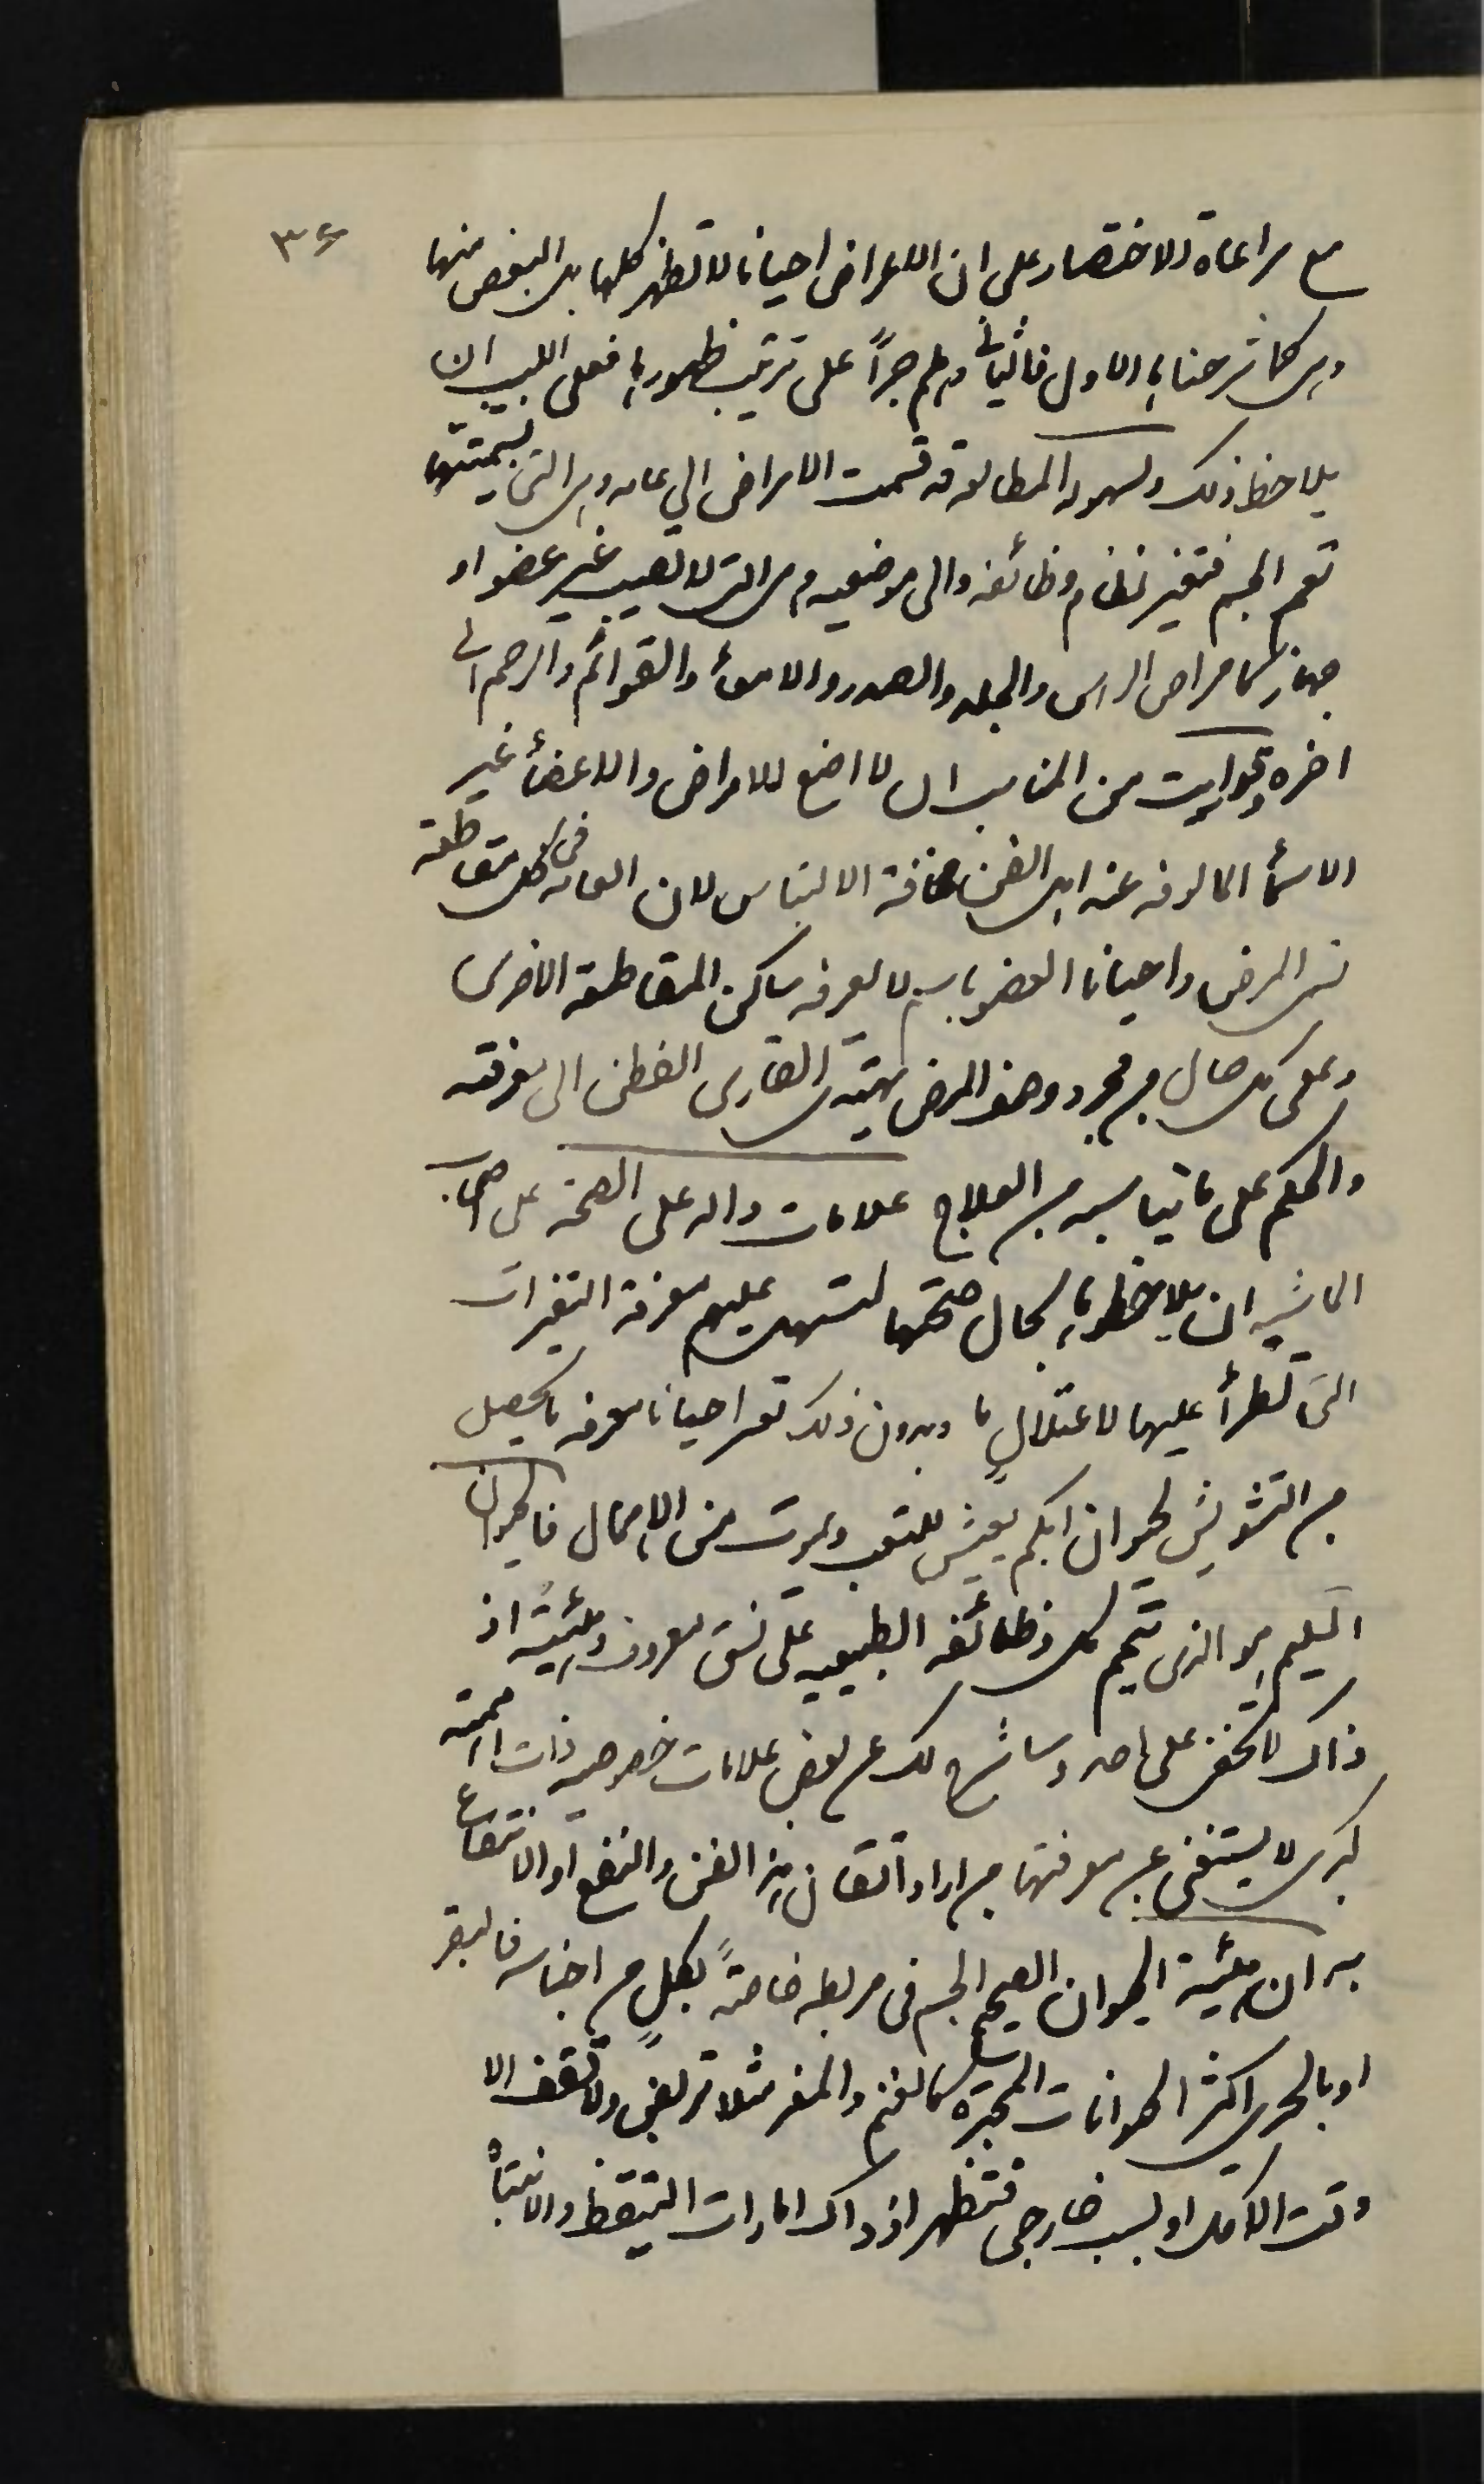 ٣٦
مع مراعاة الاختصار على ان الاعراض احيانا لا تظهر كلها بل البعض منها
وهى كما شرحناها الاول فالثانى وهلم جراً على ترتيب ظهورها فعلى اللبيب ان
يلاحظ ذلك ولسهوله المطالعه قسمت الامراض الى عامه وهى التى بسميتها
تعم الجسم فتغير نظام وظائفه والى موضعيه وهى التى لا تصيب غير عضو او
جهاز كامراض الراس والجلد والصدر والامعأ والقوائم والرحم الى
اخره ورايت من المناسب ان لا اضع للامراض والاعضأ غير
الاسمأ المالوفه عند اهل الفن مخافة الالتباس لان العامه فى كل مقاطعة
تسمى المرض واحيانا العضو باسم لا يعرفه ساكن المقاطعة الاخرى
وعلى كل حال من مجرد وصف المرض يهتدى القارى الفطن الى معرفته
والحكم على ما يناسبه من العلاج علامات داله على الصحة على اصحاب
الماشيه ان يلاحظوها بحال صحتها لتسهل عليهم معرفة التغيرات
التى تطرأ عليها لاعتلالٍ ما وبدون ذلك تعسر احيانا معرفه ما يحصل
من التشويش لحيوان ابكم يعيش للتعب ويموت من الاهمال فالحيوان
السليم هو الذى تتم كل وظائفه الطبيعيه على نسق معروف وهئيته اذ
ذاك لا تخفى على احد وساشرح لك عن بعض علامات خصوصيه ذات اهميه
كبرى لا يستغنى عن معرفتها من اراد اتقان هذا الفن والنفع او الانتفاع
به ان هئية الحيوان الصحيح الجسم فى مربطه خاصةً بكلٍ من اجناسه فالبقر
او بالحرى اكثر الحيوانات المجتره كالغنم والمعز مثلا تربض ولا تقف الا
وقت الاكل او لسبب خارجى فتظهر اذ ذاك امارات التيقظ والانتباه